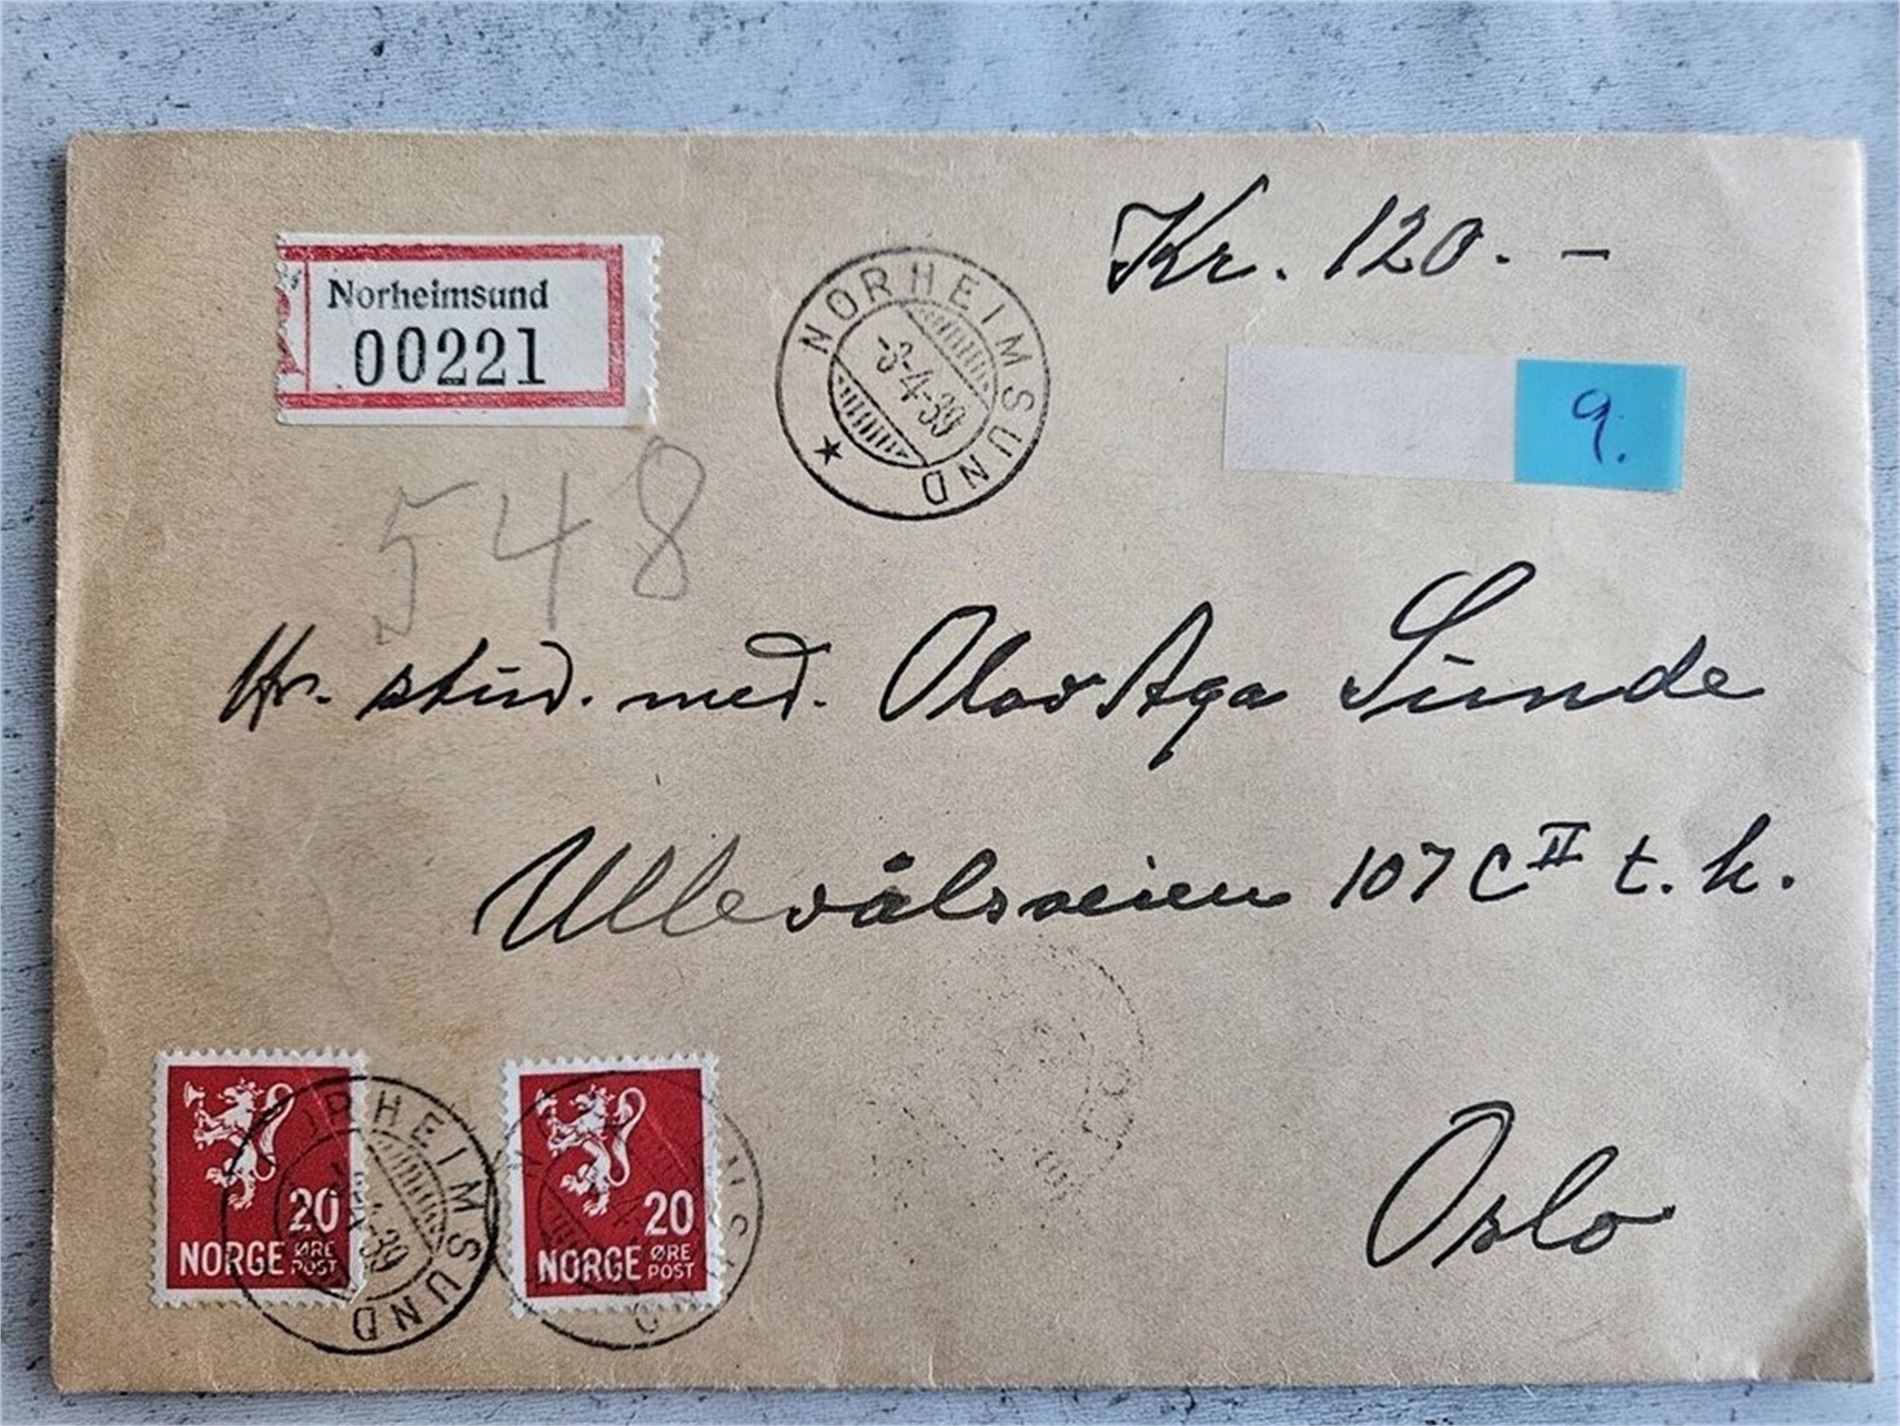 Kr. 120. –
Norheimsund
00221
NORHEIMSUND
-3-4-39
9.
548
Hr. stud. med. Olav Aga Sunde
Ullevålsveien 107 C II t. h.
Oslo
20
NORGE ØRE
POST
NORHEIMSUND
20
NORGE ØRE
POST